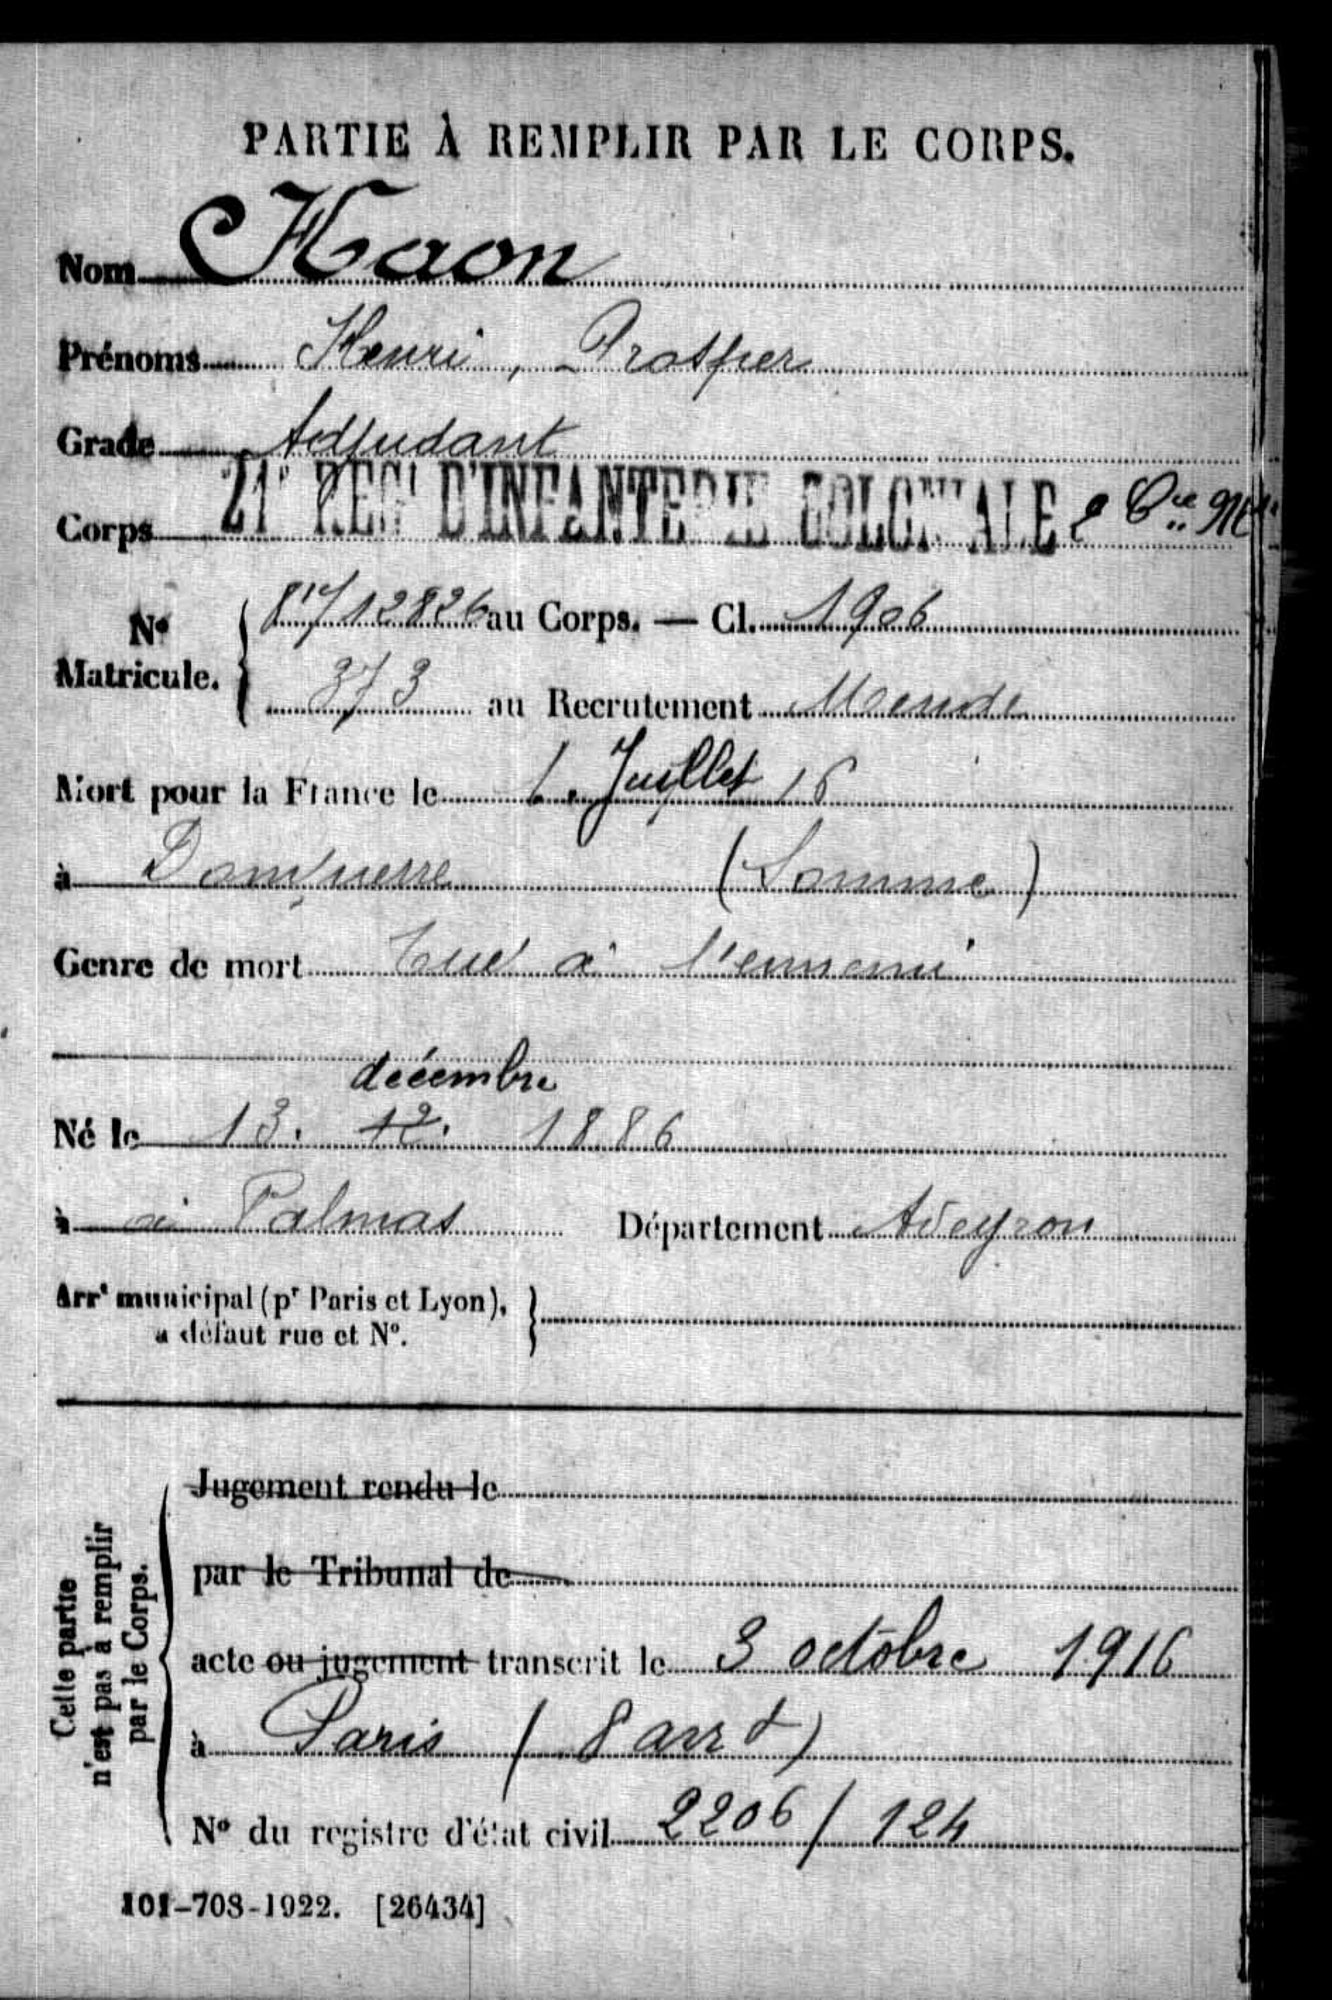 PARTIE À REMPLIR PAR LE CORPS.
Nom Haon
Prénoms Henri, Prosper
Grade Adjudant
Corps 21e REGt D'INFANTERIE COLONIALE 2 Cie Mses
No Matricule. 817/12826 au Corps. — Cl. 1906
373 au Recrutement Mende
Mort pour la France le 1. Juillet 16
à Dompierre (Somme)
Genre de mort Tué à l'ennemi
décembre
Né le 13. 12. 1886
à à Palmas Département Aveyron
Arrt municipal (pr Paris et Lyon),
a défaut rue et No.
Cette partie
n'est pas à remplir
par le Corps.
Jugement rendu le
par le Tribunal de
acte ou jugement transcrit le 3 octobre 1916
à Paris (8 arrt)
No du registre d'état civil 2206/124
101-708-1922. [26434]